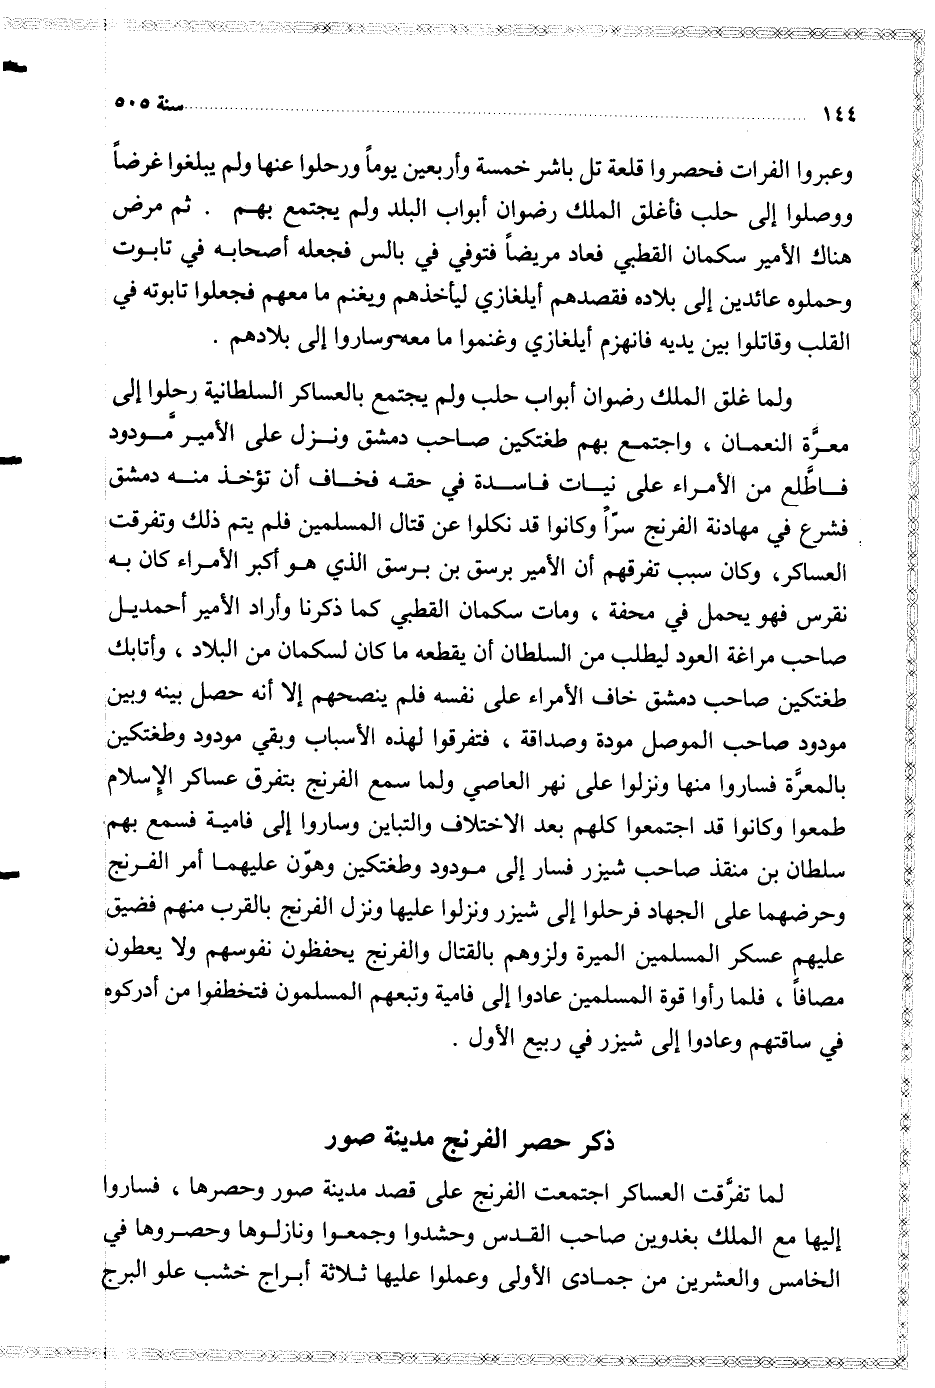 ١٤٤ ........ سنة ٥٠٥
وعبروا الفرات فحصروا قلعة تل باشر خمسة وأربعين يوماً ورحلوا عنها ولم يبلغوا غرضاً
ووصلوا إلى حلب فأغلق الملك رضوان أبواب البلد ولم يجتمع بهم . ثم مرض
هناك الأمير سكمان القطبي فعاد مريضاً فتوفي في بالس فجعله أصحابه في تابوت
وحملوه عائدين إلى بلاده فقصدهم أيلغازي ليأخذهم ويغنم ما معهم فجعلوا تابوته في
القلب وقاتلوا بين يديه فانهزم أيلغازي وغنموا ما معه وساروا إلى بلادهم .
ولما غلق الملك رضوان أبواب حلب ولم يجتمع بالعساكر السلطانية رحلوا إلى
معرَّة النعمان ، واجتمع بهم طغتكين صاحب دمشق ونزل على الأمير مَّودود
فاطَّلع من الأمراء على نيات فاسدة في حقه فخاف أن تؤخذ منه دمشق
فشرع في مهادنة الفرنج سرّاً وكانوا قد نكلوا عن قتال المسلمين فلم يتم ذلك وتفرقت
العساكر، وكان سبب تفرقهم أن الأمير برسق بن برسق الذي هو أكبر الأمراء كان به
نقرس فهو يحمل في محفة ، ومات سكمان القطبي كما ذكرنا وأراد الأمير أحمديل
صاحب مراغة العود ليطلب من السلطان أن يقطعه ما كان لسكمان من البلاد ، وأتابك
طغتكين صاحب دمشق خاف الأمراء على نفسه فلم ينصحهم إلا أنه حصل بينه وبين
مودود صاحب الموصل مودة وصداقة ، فتفرقوا لهذه الأسباب وبقي مودود وطغتكين
بالمعرَّة فساروا منها ونزلوا على نهر العاصي ولما سمع الفرنج بتفرق عساكر الإسلام
طمعوا وكانوا قد اجتمعوا كلهم بعد الاختلاف والتباين وساروا إلى فامية فسمع بهم
سلطان بن منقذ صاحب شيزر فسار إلى مودود وطغتكين وهوّن عليهما أمر الفرنج
وحرضهما على الجهاد فرحلوا إلى شيزر ونزلوا عليها ونزل الفرنج بالقرب منهم فضيق
عليهم عسكر المسلمين الميرة ولزوهم بالقتال والفرنج يحفظون نفوسهم ولا يعطون
مصافاً ، فلما رأوا قوة المسلمين عادوا إلى فامية وتبعهم المسلمون فتخطفوا من أدركوه
في ساقتهم وعادوا إلى شيزر في ربيع الأول .
ذكر حصر الفرنج مدينة صور
لما تفرَّقت العساكر اجتمعت الفرنج على قصد مدينة صور وحصرها ، فساروا
إليها مع الملك بغدوين صاحب القدس وحشدوا وجمعوا ونازلوها وحصروها في
الخامس والعشرين من جمادى الأولى وعملوا عليها ثلاثة أبراج خشب علو البرج